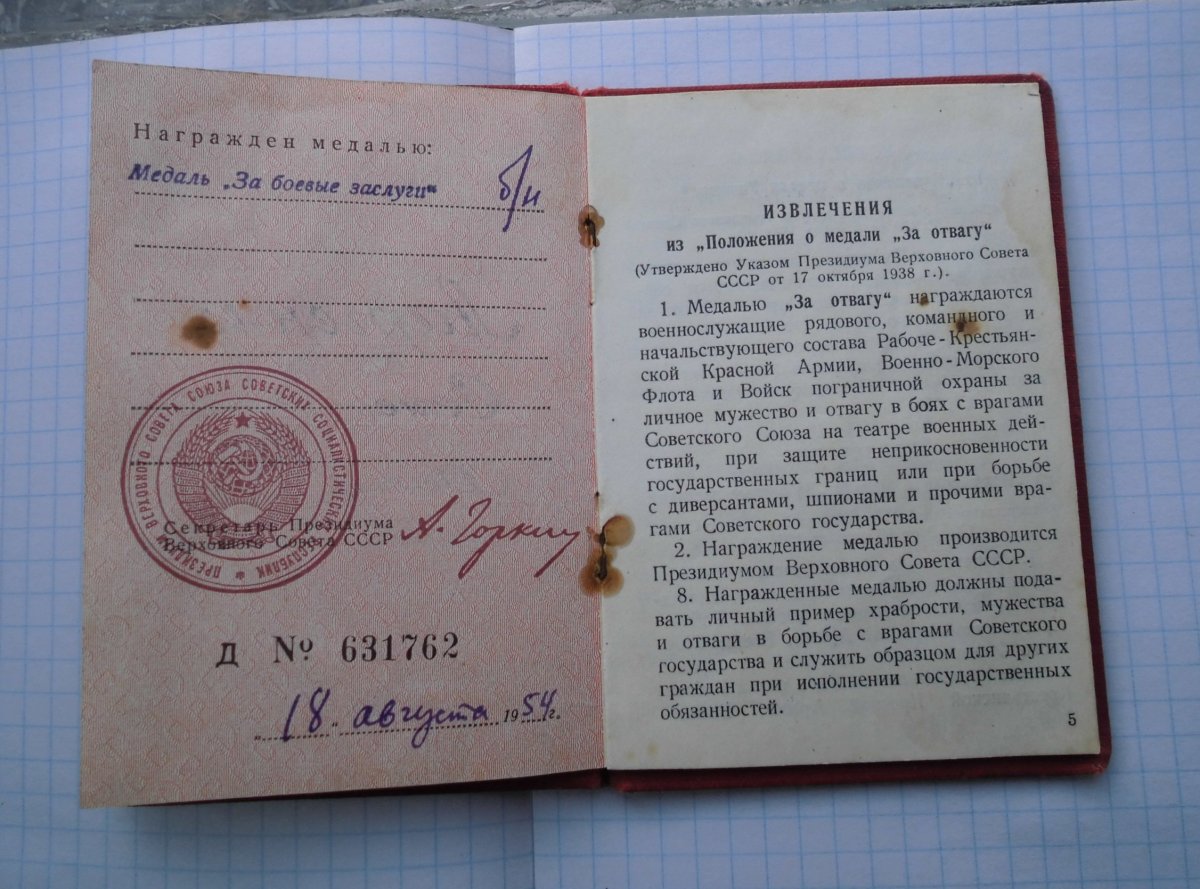 Награжден медалью:
Медаль „За боевые заслуги“ б/н
ПРЕЗИДИУМ ВЕРХОВНОГО СОВЕТА СОЮЗА СОВЕТСКИХ СОЦИАЛИСТИЧЕСКИХ РЕСПУБЛИК *
Секретарь Президиума
Верховного Совета СССР А. Горкин
Д № 631762
„18“ августа 1954 г.
ИЗВЛЕЧЕНИЯ
из „Положения о медали „За отвагу“
(Утверждено Указом Президиума Верховного Совета
СССР от 17 октября 1938 г.).
1. Медалью „За отвагу“ награждаются
военнослужащие рядового, командного и
начальствующего состава Рабоче-Крестьян-
ской Красной Армии, Военно-Морского
Флота и Войск пограничной охраны за
личное мужество и отвагу в боях с врагами
Советского Союза на театре военных дей-
ствий, при защите неприкосновенности
государственных границ или при борьбе
с диверсантами, шпионами и прочими вра-
гами Советского государства.
2. Награждение медалью производится
Президиумом Верховного Совета СССР.
8. Награжденные медалью должны пода-
вать личный пример храбрости, мужества
и отваги в борьбе с врагами Советского
государства и служить образцом для других
граждан при исполнении государственных
обязанностей.
5